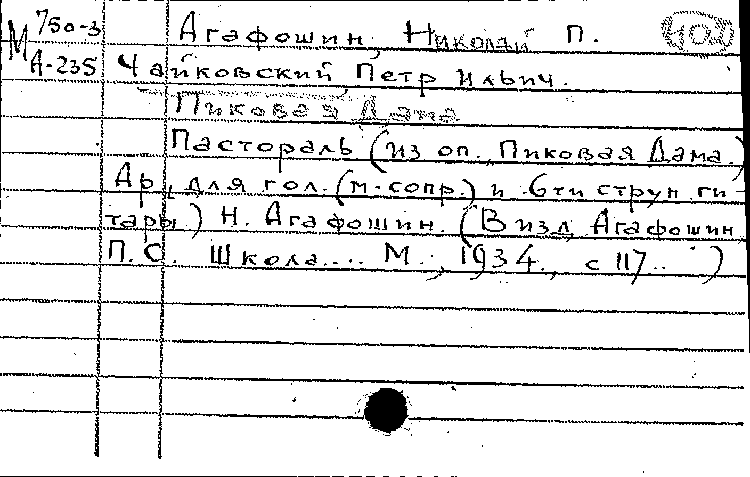 М 750-3 Агафошин, Николай П. 102
А-235 Чайковский, Петр Ильич.
Пиковая Дама
Пастораль (из оп. „Пиковая Дама.)
Ар, для гол. (м-сопр.) и 6ти струн ги-
тары) Н. Агафошин. (В изд Агафошин
П.С. Школа.... М., 1934., с 117.. )